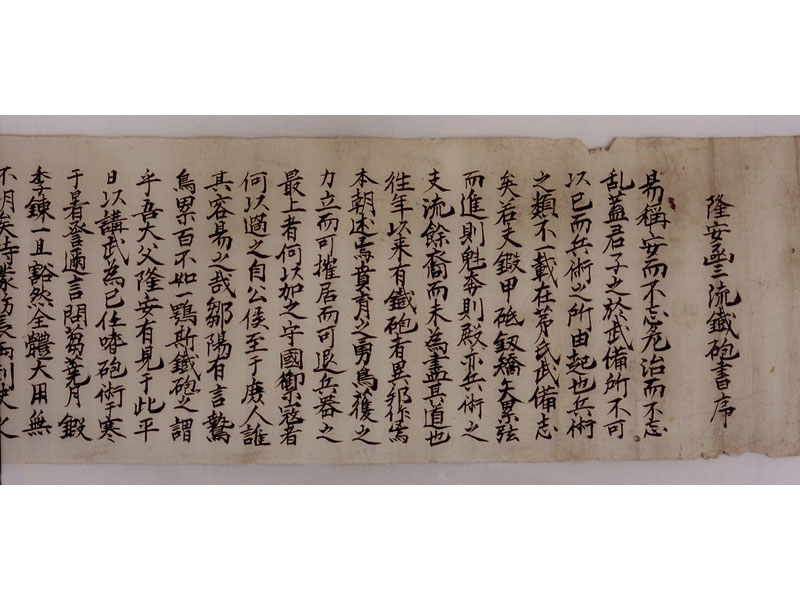 隆安函三流鐵砲書序
易稱安而不忘危治而不忘
乱蓋君子之於武備所不可
以已而兵術之所由起也兵術
之類不一載在茅氏武備志
矣若夫鍛甲砥劔矯矢累弦
而進則魁奔則殿亦兵術之
支流餘裔而未為盡其道也
往年以来有鐵砲者異邦作焉
本朝述焉賁育之勇烏獲之
力立而可摧居而可退兵器之
最上者何以加之守國禦寇者
何以過之自公侯至于庶人誰
其容易之哉鄒陽有言鷙
鳥累百不如一鶚斯鐵砲之謂
乎吾大父隆安有見于此平
日以講武為已任嗜砲術于寒
于暑登邇言問蒭蕘月鍛
季錬一旦豁然全體大用無
不明矣